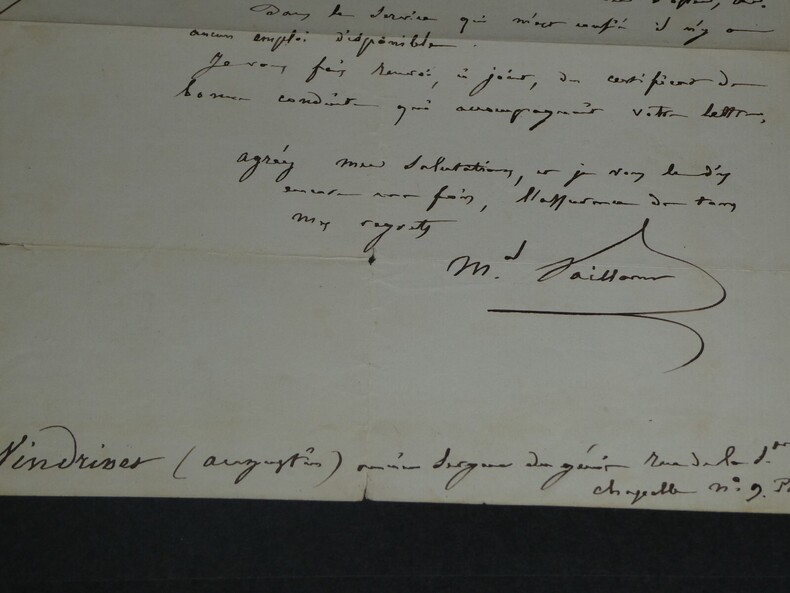 Dans le service qui m'est confié il n'y a
aucun emploi disponible.
Je vous fais renvoi, ci joint, du certificat de
bonne conduite qui accompagnait votre lettre.
agréez mes salutations, et je vous le dis
encore une fois, l'assurance de tous
mes regrets
M.al Vaillant
Vindrinet (augustin) ancien Sergent du génie rue de la Ste
chapelle n.° 9. P